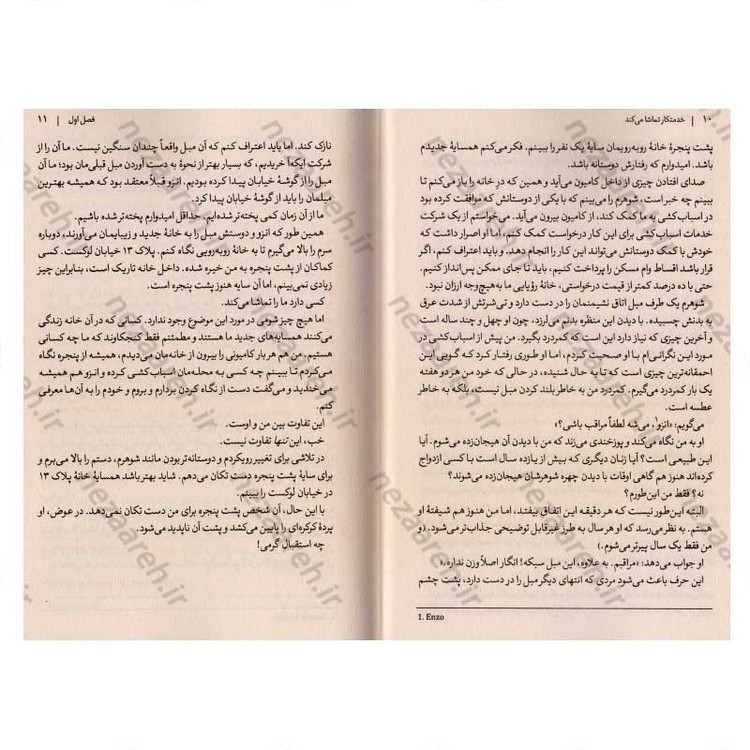 ۱۰ | خدمتکار تماشا می‌کند
پشت پنجرهٔ خانهٔ روبه‌رویمان سایهٔ یک نفر را ببینم. فکر می‌کنم همسایهٔ جدیدم
باشد. امیدوارم که رفتارش دوستانه باشد.
صدای افتادن چیزی از داخل کامیون می‌آید و همین که درِ خانه را باز می‌کنم تا
ببینم چه خبر است، شوهرم را می‌بینم که با یکی از دوستانش که موافقت کرده بود
در اسباب‌کشی به ما کمک کند، از کامیون بیرون می‌آید. می‌خواستم از یک شرکت
خدمات اسباب‌کشی برای این کار درخواست کمک کنم، اما او اصرار داشت که
خودش با کمک دوستانش می‌تواند این کار را انجام دهد. و باید اعتراف کنم، اگر
قرار باشد اقساط وام مسکن را پرداخت کنیم، باید تا جای ممکن پس‌انداز کنیم.
حتی با ده درصد کمتر از قیمت درخواستی، خانهٔ رؤیایی ما به‌هیچ‌وجه ارزان نبود.
شوهرم یک طرف مبل اتاق نشیمنمان را در دست دارد و تی‌شرتش از شدت عرق
به بدنش چسبیده. با دیدن این منظره بدنم می‌لرزد، چون او چهل و چند ساله است
و آخرین چیزی که نیاز دارد این است که کمردرد بگیرد. من پیش از اسباب‌کشی در
مورد این نگرانی‌ام با او صحبت کردم، اما او طوری رفتار کرد که گویی این
احمقانه‌ترین چیزی است که تا به حال شنیده، در حالی که خود من هر دو هفته
یک بار کمردرد می‌گیرم. کمردرد من به خاطر بلند کردن مبل نیست، بلکه به خاطر
عطسه است.
می‌گویم: «انزو۱، می‌شه لطفاً مراقب باشی؟»
او به من نگاه می‌کند و پوزخندی می‌زند که من با دیدن آن هیجان‌زده می‌شوم. آیا
این طبیعی است؟ آیا زنان دیگری که بیش از یازده سال است با کسی ازدواج
کرده‌اند هنوز هم گاهی اوقات با دیدن چهره شوهرشان هیجان‌زده می‌شوند؟
نه؟ فقط من این‌طورم؟
البته این‌طور نیست که هر دقیقه این اتفاق بیفتد، اما من هنوز هم شیفتهٔ او
هستم. به نظر می‌رسد که او هر سال به طرز غیرقابل توضیحی جذاب‌تر می‌شود. (و
من فقط یک سال پیرتر می‌شوم.)
او جواب می‌دهد: «مراقبم. به علاوه، این مبل سبکه! انگار اصلاً وزن نداره.»
این حرف باعث می‌شود مردی که انتهای دیگر مبل را در دست دارد، پشت چشم
1. Enzo
فصل اول | ۱۱
نازک کند. اما باید اعتراف کنم که آن مبل واقعاً چندان سنگین نیست. ما آن را از
شرکت ایکه‌آ خریدیم، که بسیار بهتر از نحوهٔ به دست آوردن مبل قبلی‌مان بود؛ ما آن
مبل را از گوشهٔ خیابان پیدا کرده بودیم. انزو قبلاً معتقد بود که همیشه بهترین
مبلمان را باید از گوشهٔ خیابان پیدا کرد.
ما از آن زمان کمی پخته‌تر شده‌ایم. حداقل امیدوارم پخته‌تر شده باشیم.
همین طور که انزو و دوستش مبل را به خانهٔ جدید و زیبایمان می‌آورند، دوباره
سرم را بالا می‌گیرم تا به خانهٔ روبه‌رویی نگاه کنم. پلاک ۱۳ خیابان لوکست. کسی
کماکان از پشت پنجره به من خیره شده. داخل خانه تاریک است، بنابراین چیز
زیادی نمی‌بینم، اما آن سایه هنوز پشت پنجره است.
کسی دارد ما را تماشا می‌کند.
اما هیچ چیز شومی در مورد این موضوع وجود ندارد. کسانی که در آن خانه زندگی
می‌کنند همسایه‌های جدید ما هستند و مطمئنم فقط کنجکاوند که ما چه کسانی
هستیم. من هم هر بار کامیونی را بیرون از خانه‌مان می‌دیدم، همیشه از پنجره نگاه
می‌کردم تا ببینم چه کسی به محله‌مان اسباب‌کشی کرده و انزو هم همیشه
می‌خندید و می‌گفت دست از نگاه کردن بردارم و بروم و خودم را به آن‌ها معرفی
کنم.
این تفاوت بین من و اوست.
خب، این تنها تفاوت نیست.
در تلاشی برای تغییر رویکردم و دوستانه‌تر بودن مانند شوهرم، دستم را بالا می‌برم و
برای سایهٔ پشت پنجره دست تکان می‌دهم. شاید بهتر باشد همسایهٔ خانهٔ پلاک ۱۳
در خیابان لوکست را ببینم.
با این حال، آن شخص پشت پنجره برای من دست تکان نمی‌دهد. در عوض، او
پردهٔ کرکره‌ای را پایین می‌کشد و پشت آن ناپدید می‌شود.
چه استقبال گرمی!
nezaareh.ir